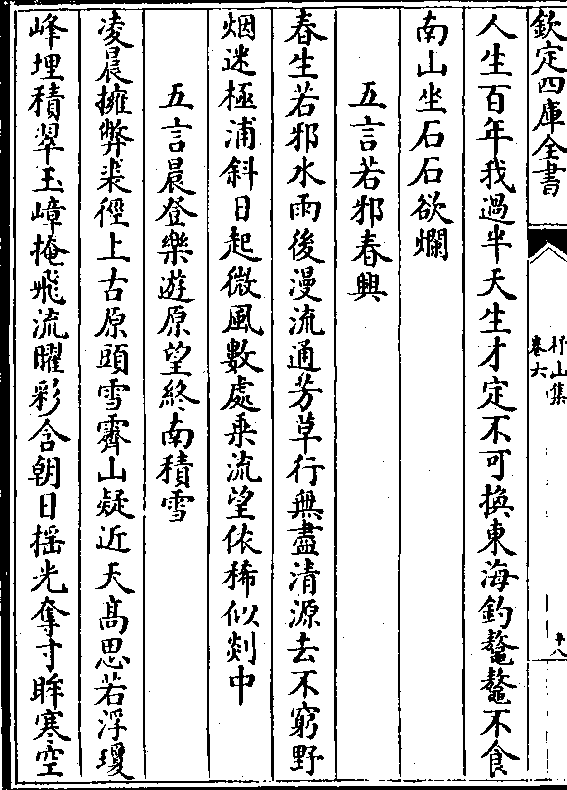 欽定四庫全書
杼山集
卷六
十八
人生百年我過半天生才定不可換東海釣鼇鼇不食
南山坐石石欲爛
五言若邪春興
春生若邪水雨後漫流通芳草行無盡清源去不窮野
烟迷極浦斜日起微風數處乗流望依稀似剡中
五言晨登樂遊原望終南積雪
凌晨擁弊裘徑上古原頭雪霽山疑近天髙思若浮瓊
峰埋積翠玉嶂掩飛流曜彩含朝日揺光奪寸眸寒空